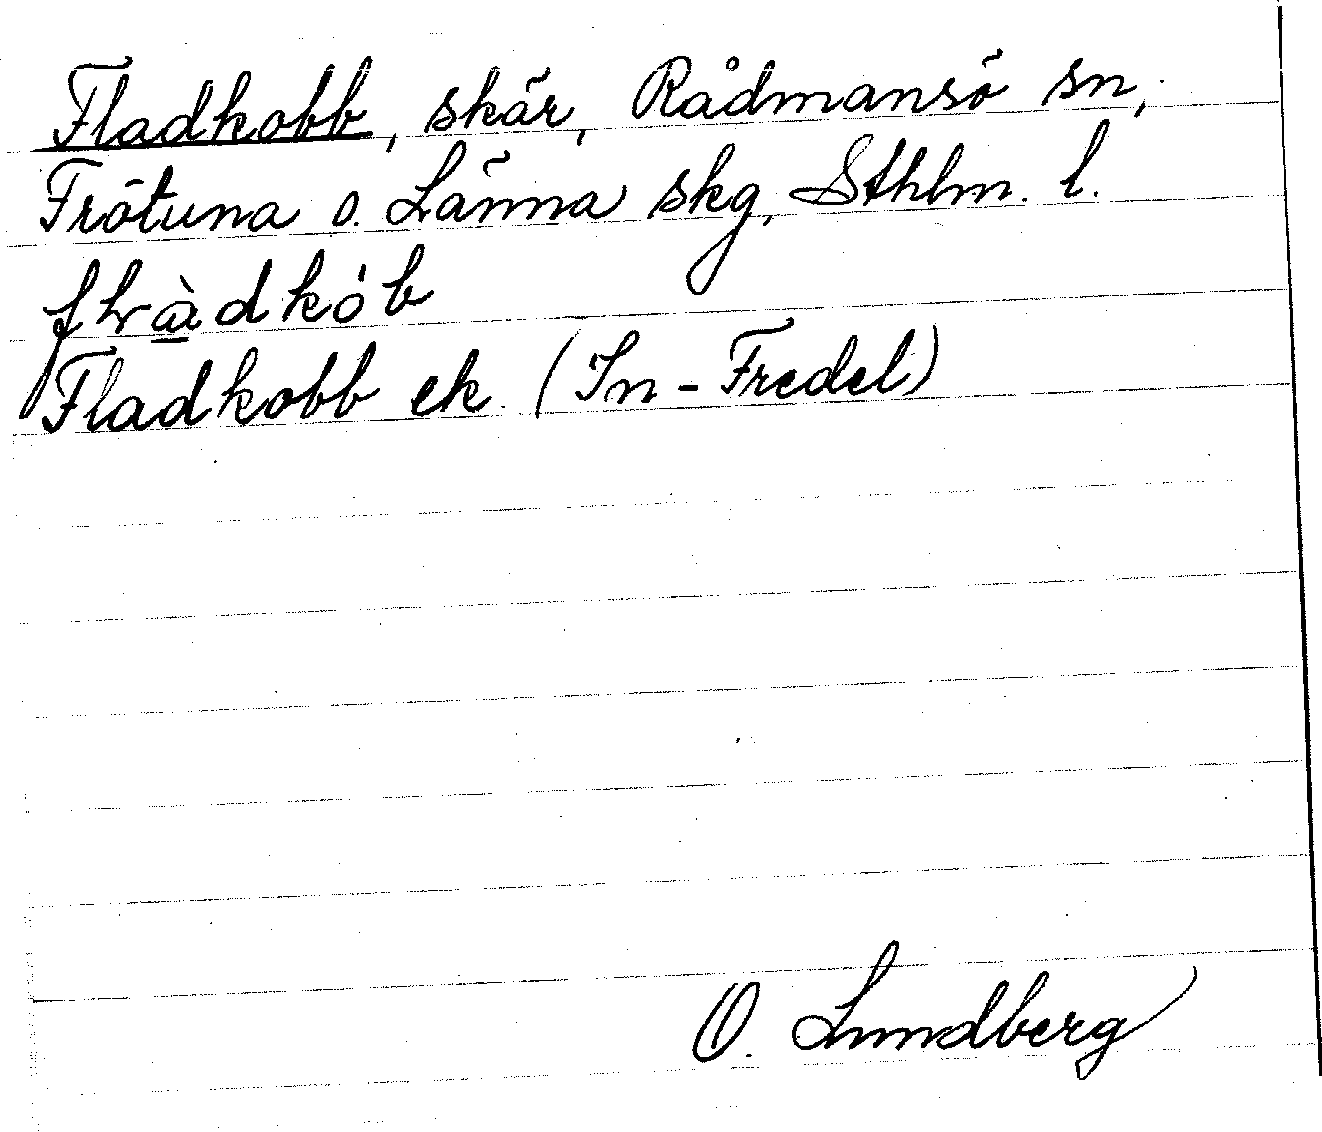 Fladkobb, skär, Rådmansö sn,
Frötuna o. Länna skg, Sthlm. l.
flràdkòb
Fladkobb ek. (In-Fredel)
O. Lundberg